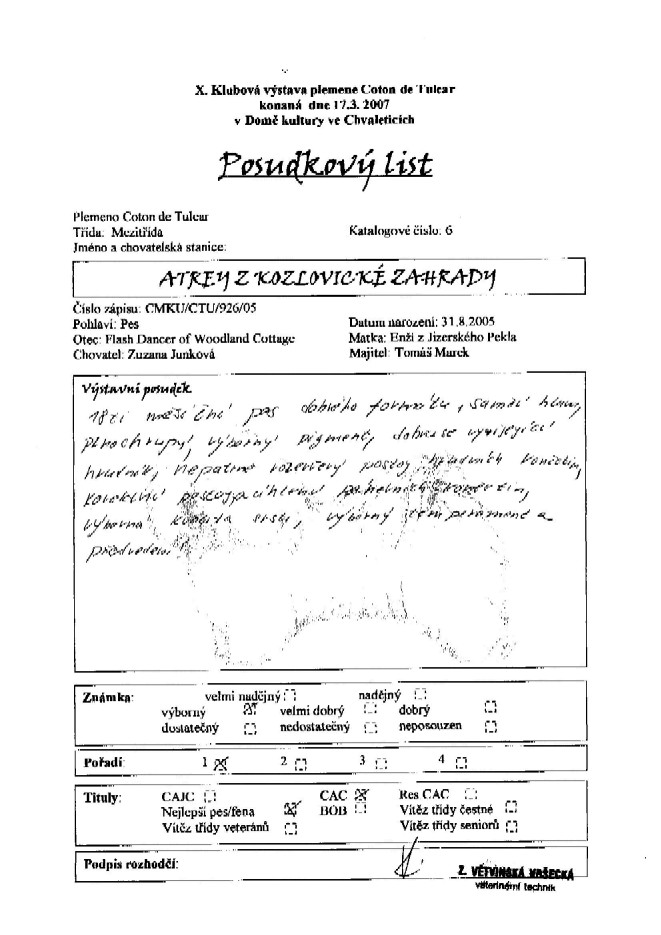 X. Klubová výstava plemene Coton de Tulear
konaná dne 17.3. 2007
v Domě kultury ve Chvaleticích
Posudkový list
Plemeno Coton de Tulear
Třída: Mezitřída Katalogové číslo: 6
Jméno a chovatelská stanice:
ATREY Z KOZLOVICKÉ ZAHRADY
Číslo zápisu: CMKU/CTU/926/05
Pohlaví: Pes Datum narození: 31.8.2005
Otec: Flash Dancer of Woodland Cottage Matka: Enži z Jizerského Pekla
Chovatel: Zuzana Junková Majitel: Tomáš Marek
Výstavní posudek
18ti měsíční pes dobrého formátu, samčí hlava,
plnochrupý, výborný pigment, dobře se vyvíjející
hrudník, nepatrně rozevřený postoj hrudních končetin,
korektní postoj a úhlení pánevních končetin,
výborná kvalita srsti, výborný temperament a
předvedení
Známka: velmi nadějný nadějný
výborný velmi dobrý dobrý
dostatečný nedostatečný neposouzen
Pořadí: 1 2 3 4
Tituly: CAJC CAC Res CAC
Nejlepší pes/fena BOB Vítěz třídy čestné
Vítěz třídy veteránů Vítěz třídy seniorů
Podpis rozhodčí:
Z. VĚTVINSKÁ KRŠECKÁ
veterinární technik